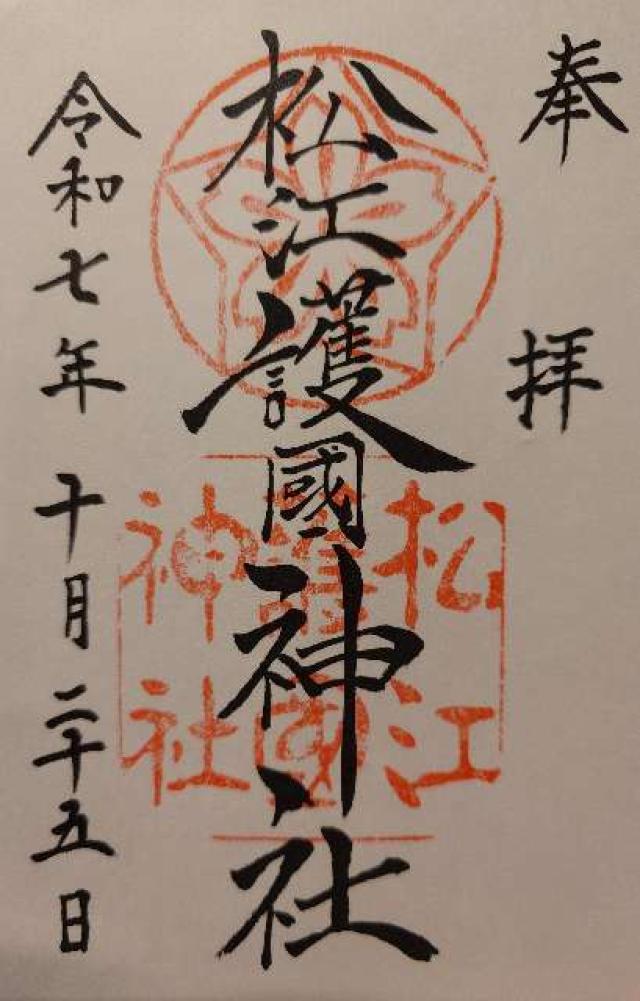 奉拝
松江護國神社
令和七年十月二十五日
松江
護國
神社